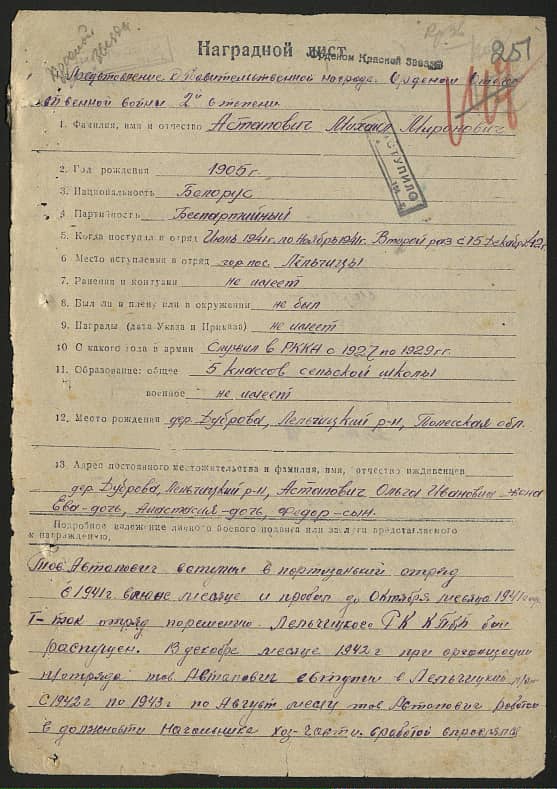 251
Наградной лист
Орденом Красной звезды
Представление к Правительственной награде Орденом Отече-
ственной войны 2й степени
1. Фамилия, имя и отчество Астапович Михаил Миронович
ПОСТУПИЛО
2. Год рождения 1905 г.
3. Национальность Белорус
4 Партийность Беспартийный
5. Когда поступил в отряд Июнь 1941 г. по Ноябрь 1941 г. Второй раз с 15 Декабря 42 г.
6 Место вступления в отряд гор. пос. Лельчицы
7. Ранения и контузии не имеет
8. Был ли в плену или в окружении не был
9. Награды (дата Указа и Приказа) не имеет
10 С какого года в армии Служил в РККА с 1927 по 1929 гг.
11. Образование: общее 5 классов сельской школы
военное не имеет
12. Место рождения дер. Дуброва, Лельчицкий р-н, Полесская обл.
13. Адрес постоянного местожительства и фамилия, имя, отчество иждивенцев
дер. Дуброва, Лельчицкий р-н, Астапович Ольга Ивановна - жена
Ева - дочь, Анастасия - дочь, Федор - сын.
Подробное изложение личного боевого подвига или заслуг представляемого
к награждению,
Тов. Астапович вступил в партизанский отряд
с 1941 г. в июне месяце и пробыл до Октября месяца 1941 года
Т-ак как отряд порешению Лельчицкого РК КПБ был
распущен. В декабре месяце 1942 г при организации
п/отряда тов Астапович вступил в Лельчицкий п/о
С 1942 г по 1943 г по Август месяц тов Астапович работал
в должности Начальника хоз-части. с работой справлялся